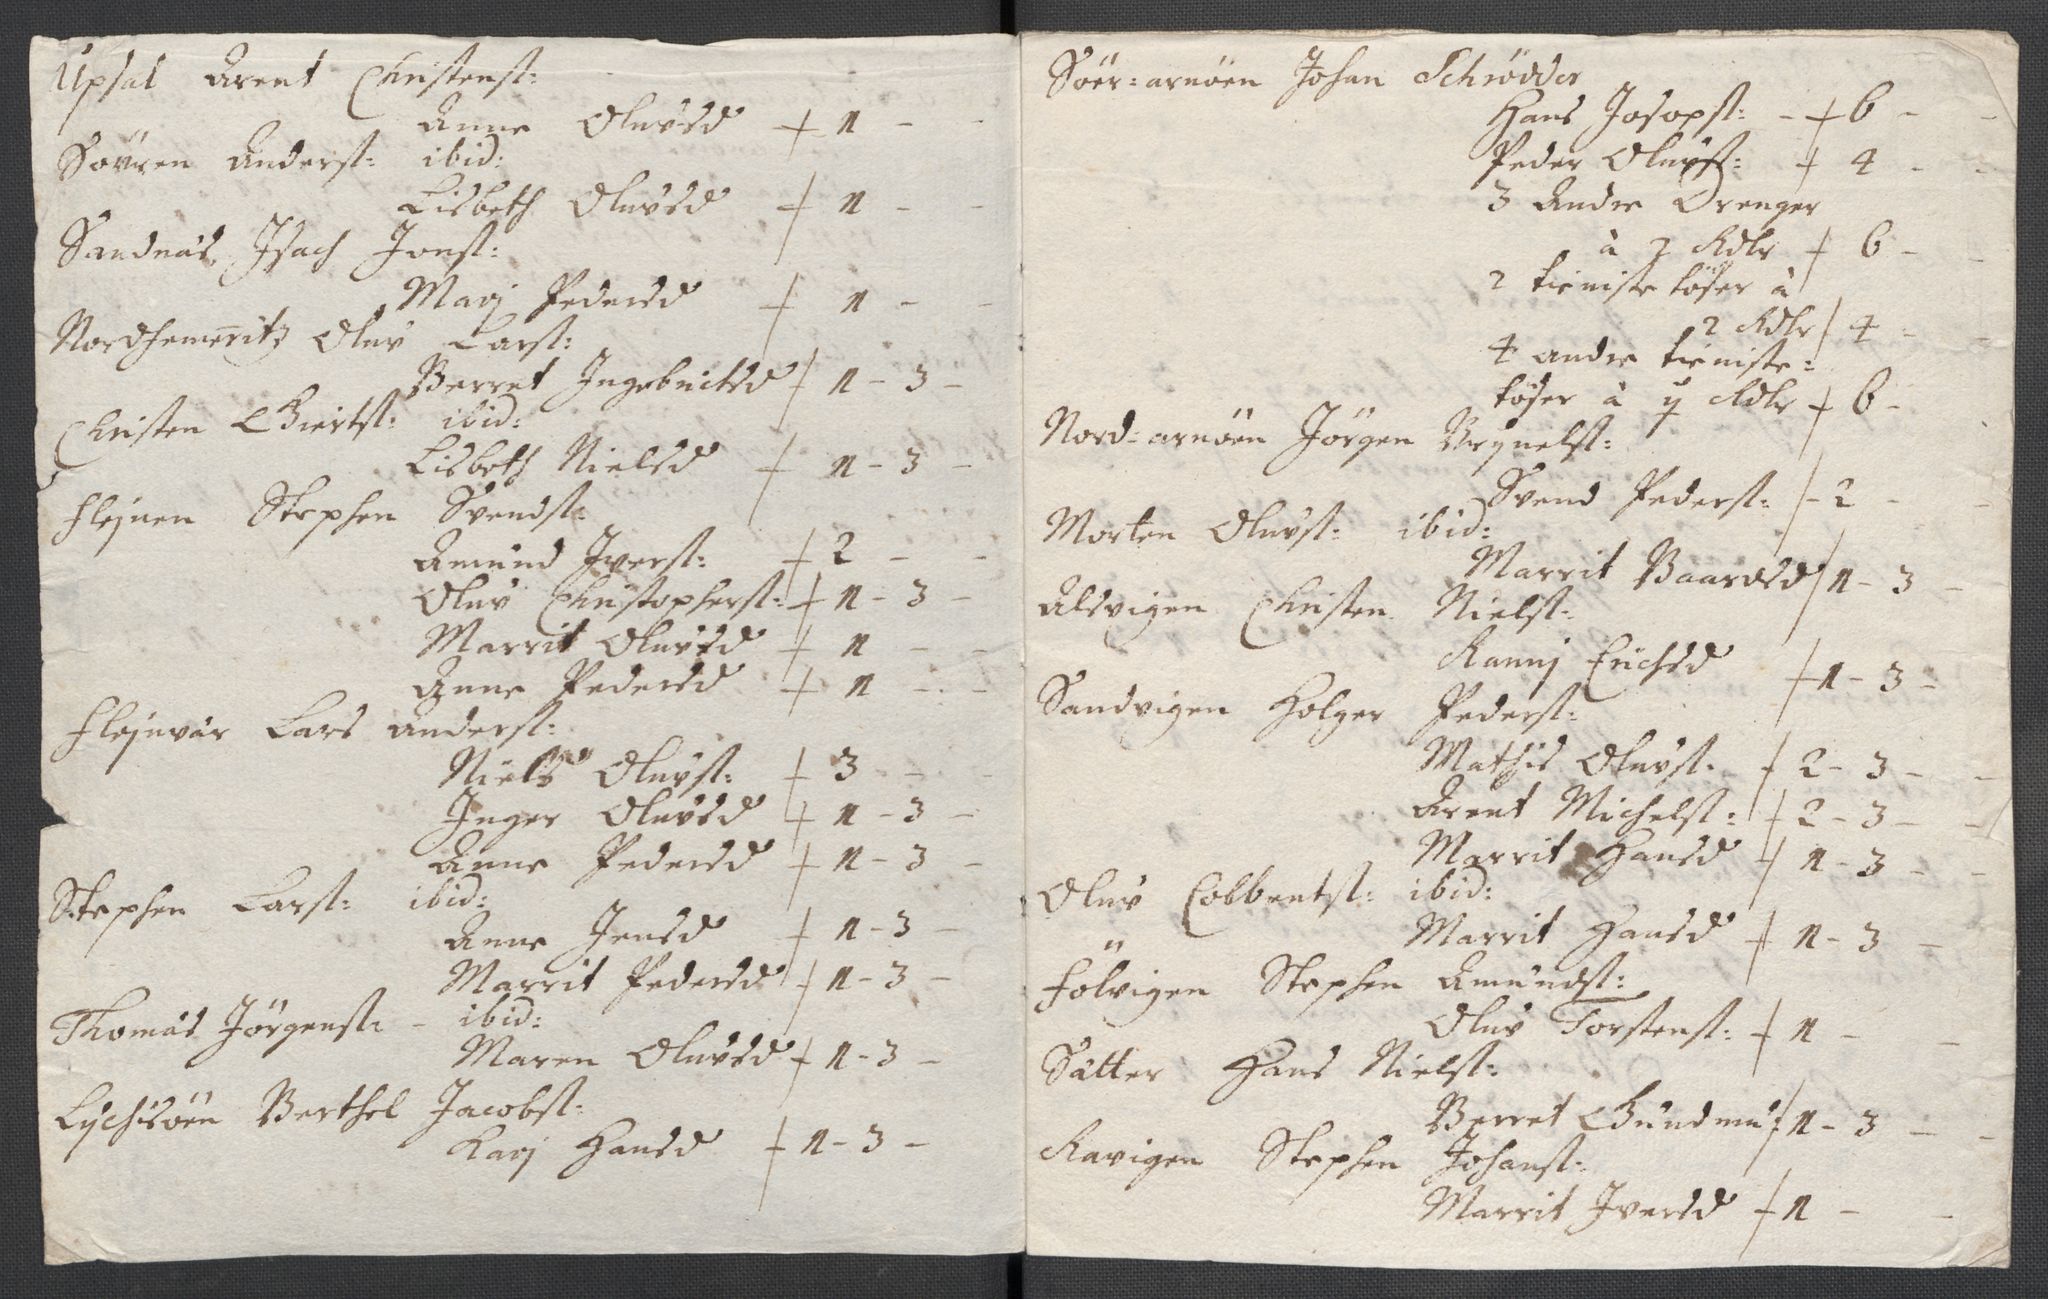 Upsal Arent Christenst:
Anne Oluvsd + 1 - -
Søvren Anderst: ibid:
Lisbeth Oluvsd + 1 - -
Sandnäs, Isach Jonst:
Marj Pedersd + 1 - -
Nordhemeritz Oluv Larst:
Berret Ingebrictsd + 1 - 3 -
Christen Giertst: ibid:
Lisbeth Nielsd + 1 - 3 -
Flejnen Stephen Svendst:
Amund Iverst: + 2 - -
Oluv Christopherst: + 1 - 3 -
Marrit Oluvsd + 1 - -
Anne Pedersd + 1 - -
Flejnvär Lars Anderst:
Niels Oluvst: + 3 - -
Inger Oluvsd + 1 - 3 -
Anne Pedersd + 1 - 3 -
Stephen Larst: ibid:
Anne Jensd + 1 - 3 -
Marrit Pedersd + 1 - 3 -
Thomas Jörgenst: - ibid:
Maren Oluvsd + 1 - 3 -
Lychisöen Berthel Jacobst:
Karj Hansd + 1 - 3 -
Söer-arnöen Johan Schrödder
Hans Josepst: - + 6 - -
Peder Oluvst: + 4 - -
3 Andre Drenger
à 2 Rdlr + 6 - -
2 tieniste töser à
2 Rdlr + 4 - -
4 andre tieniste-
töser à Rdlr + 6 -
Nord-arnöen Jörgen Brynelst:
Svend Pederst: + 2 - -
Morten Oluvst: ibid:
Marrit Baardsd + 1 - 3 -
Alsvigen Christen Nielst:
Rannj Erichsd + 1 - 3 -
Sandvigen Holger Pederst:
Mathis Oluvst: + 2 - 3 - -
Arent Michelst: + 2 - 3 - -
Marrit Hansd + 1 - 3 - -
Oluv Colbentst: ibid:
Marrit Hansd + 1 - 3 -
Fölvigen Stephen Amundst:
Oluv Torstenst: + 1 - -
Sätter Hans Nielst:
Berret Gundmu: + 1 - 3 - -
Ravigen Stephen Johanst:
Marrit Iversd + 1 - -